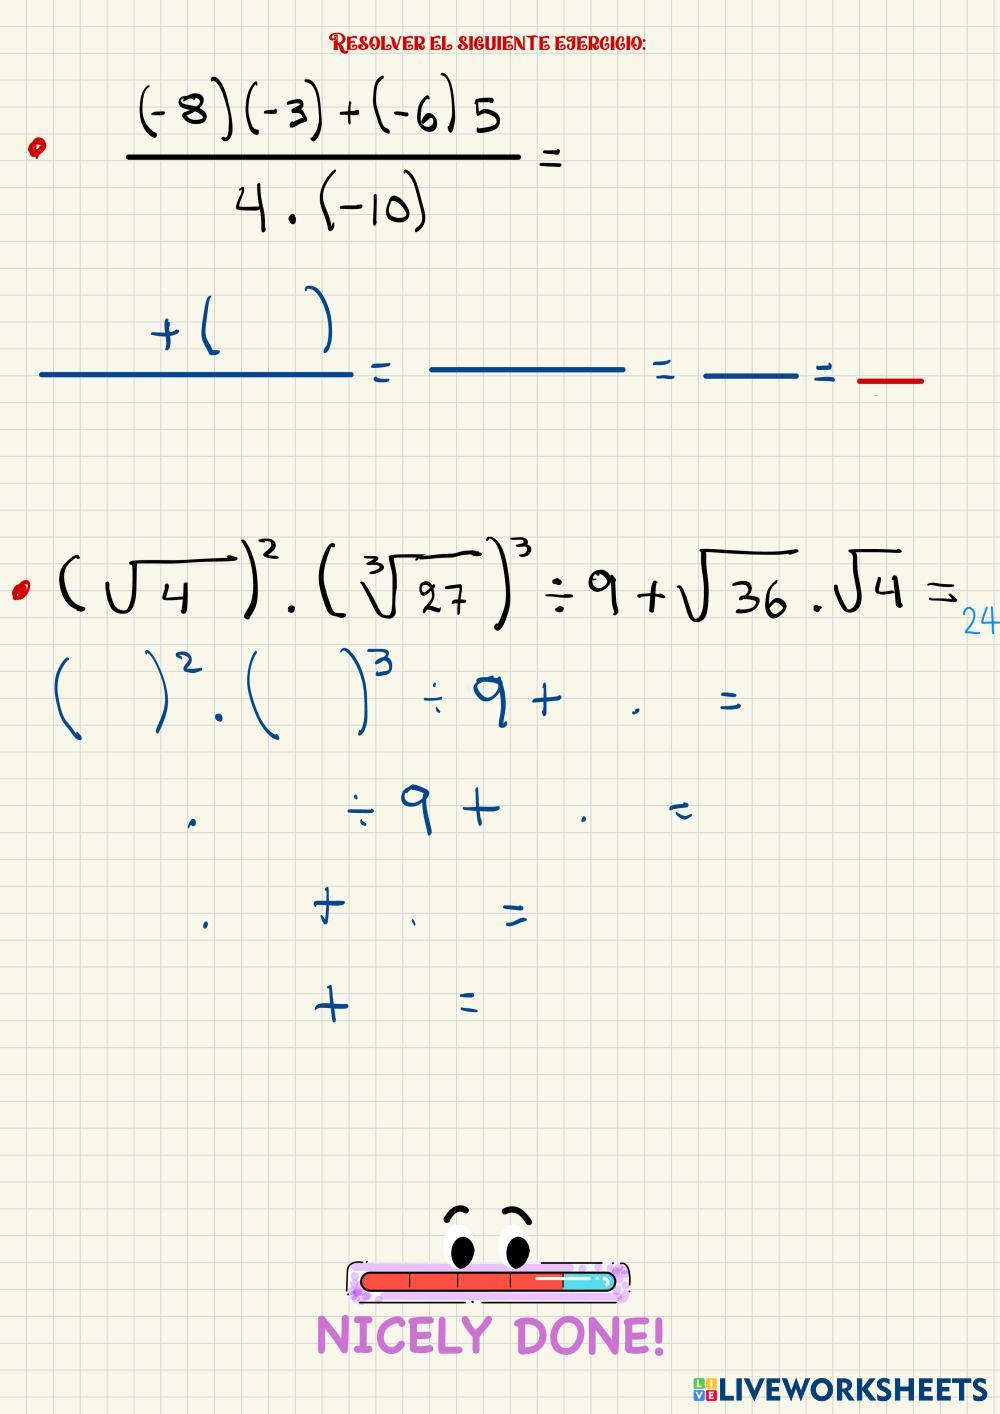 RESOLVER EL SIGUIENTE EJERCICIO:
(-8)(-3) + (-6) 5
=
4 . (-10)
+ ( )
= = =
(√4)² . (³√27)³ ÷ 9 + √36 . √4 =
24
( )² . ( )³ ÷ 9 + . =
. ÷ 9 + . =
. + . =
+ =
NICELY DONE!
LIVE LIVEWORKSHEETS